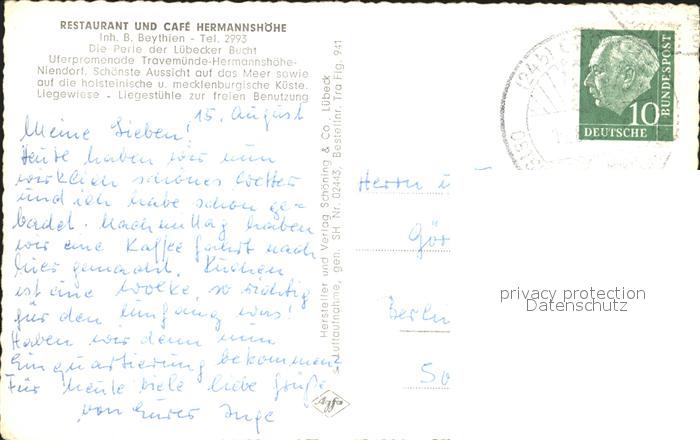 RESTAURANT UND CAFÉ HERMANNSHÖHE
Inh. B. Beythien - Tel. 2993
Die Perle der Lübecker Bucht
Uferpromenade Travemünde-Hermannshöhe-
Niendorf. Schönste Aussicht auf das Meer sowie
auf die holsteinische u. mecklenburgische Küste.
Liegewiese - Liegestühle zur freien Benutzung
15. August
Meine Lieben!
Heute haben wir nun
wirklich schönes Wetter
und ich habe schon ge=
badet. Nachmittag haben
wir eine Kaffee fahrt nach
hier gemacht. Kuchen
ist eine Wolke, so richtig
für den Umfang was!
Haben wir denn nun
Einquartierung bekommen?
Für heute viele liebe Grüße
von Eurer Inge
Hersteller und Verlag Schöning & Co., Lübeck
Luftaufnahme, gen. SH Nr. 02443, Bestellnr. Tra Flg. 941
Agfa
10
DEUTSCHE
BUNDESPOST
Herrn u
Gör
Berlin
So
privacy protection
Datenschutz